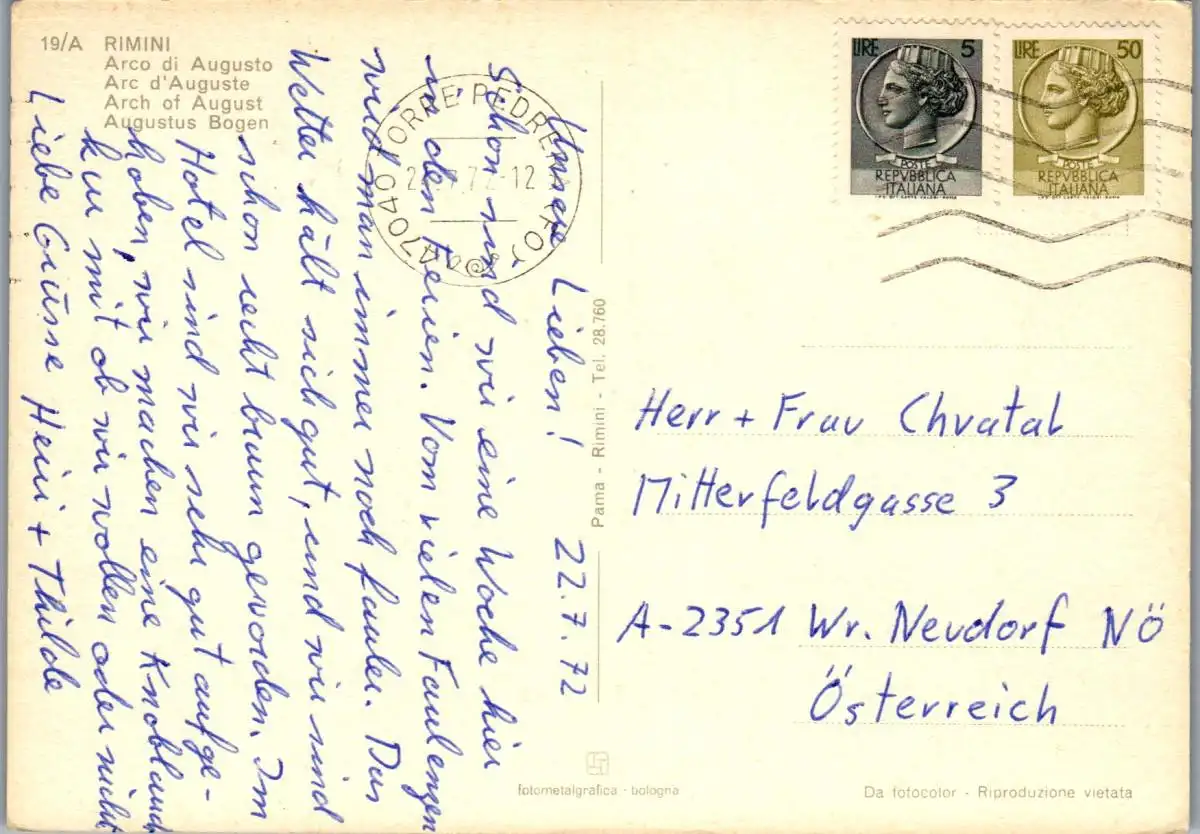 19/A RIMINI
Arco di Augusto
Arc d'Auguste
Arch of August
Augustus Bogen
Unsere Lieben! 22.7.72
Schon sind wir eine Woche hier
in den Ferien. Vom vielen Faulenzen
wird man immer noch fauler. Das
Wetter hält sich gut, und wir sind
schon recht braun geworden. Im
Hotel sind wir sehr gut aufge-
hoben, wir machen eine Knoblauch
kur mit ob wir wollen oder nicht
Liebe Grüsse Heini + Thilde
TORRE PEDRERA (FO)
47040
.72-12
Pama - Rimini - Tel. 28.760
LIRE 5
POSTE
REPVBBLICA
ITALIANA
LIRE 50
POSTE
REPVBBLICA
ITALIANA
Herr + Frau Chvatal
Mitterfeldgasse 3
A-2351 Wr. Neudorf NÖ
Österreich
fotometalgrafica - bologna
Da fotocolor - Riproduzione vietata